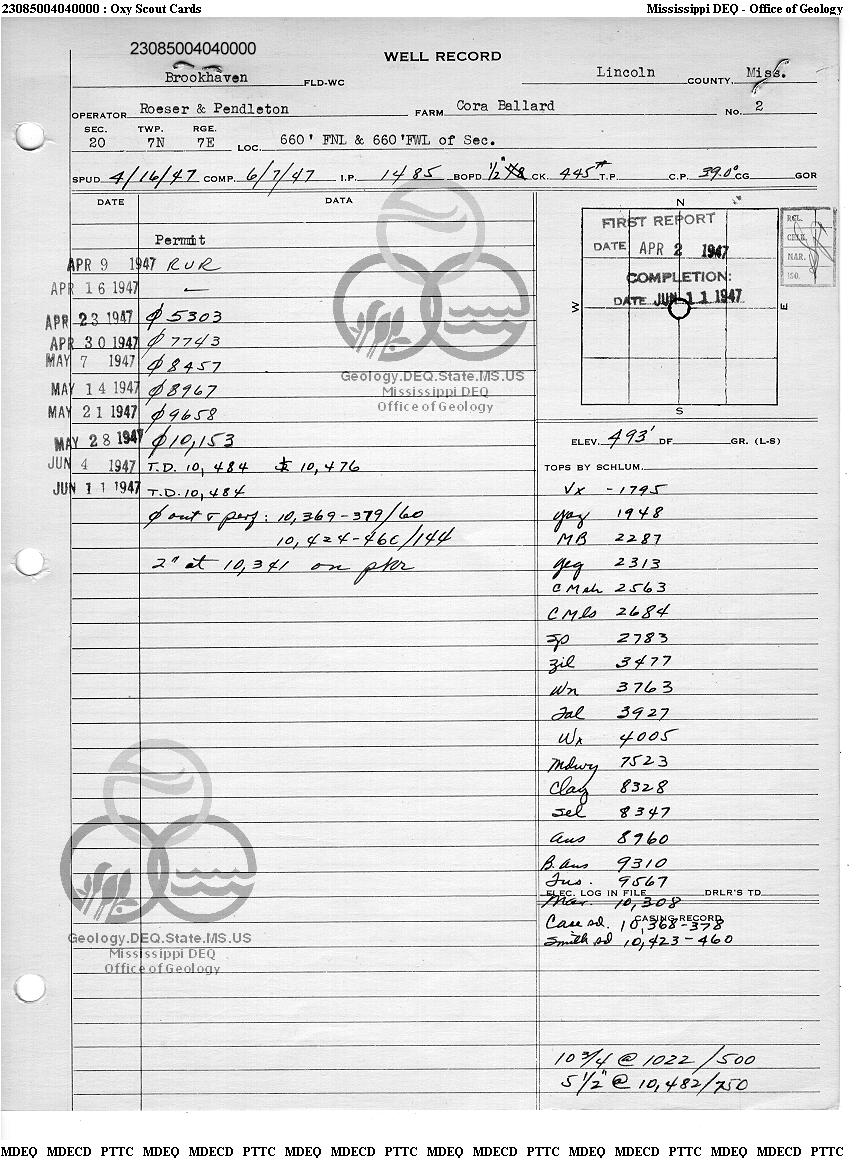 23085004040000 : Oxy Scout Cards Mississippi DEQ - Office of Geology
23085004040000
WELL RECORD
Brookhaven FLD-WC Lincoln COUNTY, Miss.
OPERATOR Roeser & Pendleton FARM Cora Ballard No. 2
SEC. TWP. RGE.
20 7N 7E LOC. 660' FNL & 660'FWL of Sec.
SPUD 4/16/47 COMP. 6/7/47 I.P. 1485 BOPD 1/2" CK. 445# T.P. C.P. 39.0° CG GOR
DATE DATA
Permit
APR 9 1947 RUR
APR 16 1947 —
APR 23 1947 ϕ 5303
APR 30 1947 ϕ 7743
MAY 7 1947 ϕ 8457
MAY 14 1947 ϕ 8967
MAY 21 1947 ϕ 9658
MAY 28 1947 ϕ 10,153
JUN 4 1947 T.D. 10,484 10,476
JUN 11 1947 T.D. 10,484
ϕ out & perf: 10,369-379/60
10,424-466/144
2" at 10,341 on pkr
Geology.DEQ.State.MS.US
Mississippi DEQ
Office of Geology
Geology.DEQ.State.MS.US
Mississippi DEQ
Office of Geology
N
FIRST REPORT
DATE APR 2 1947
COMPLETION:
DATE JUN 11 1947
W E
S
REL.
MAR.
ISO.
ELEV. 493' DF GR. (L-S)
TOPS BY SCHLUM.
Vx -1795
Yaz 1948
MB 2287
Yeg 2313
CMsh 2563
CMls 2684
Sp 2783
Zil 3477
Wn 3763
Tal 3927
Wx 4005
Mdwy 7523
Clay 8328
Sel 8347
Aus 8960
B. Aus 9310
Tus. 9567
ELEC. LOG IN FILE DRLR'S TD
Mar. 10,308
CASING RECORD
Case sd. 10,368-378
Smith sd 10,423-460
10 3/4 @ 1022/500
5 1/2" @ 10,482/750
MDEQ MDECD PTTC MDEQ MDECD PTTC MDEQ MDECD PTTC MDEQ MDECD PTTC MDEQ MDECD PTTC MDEQ MDECD PTTC